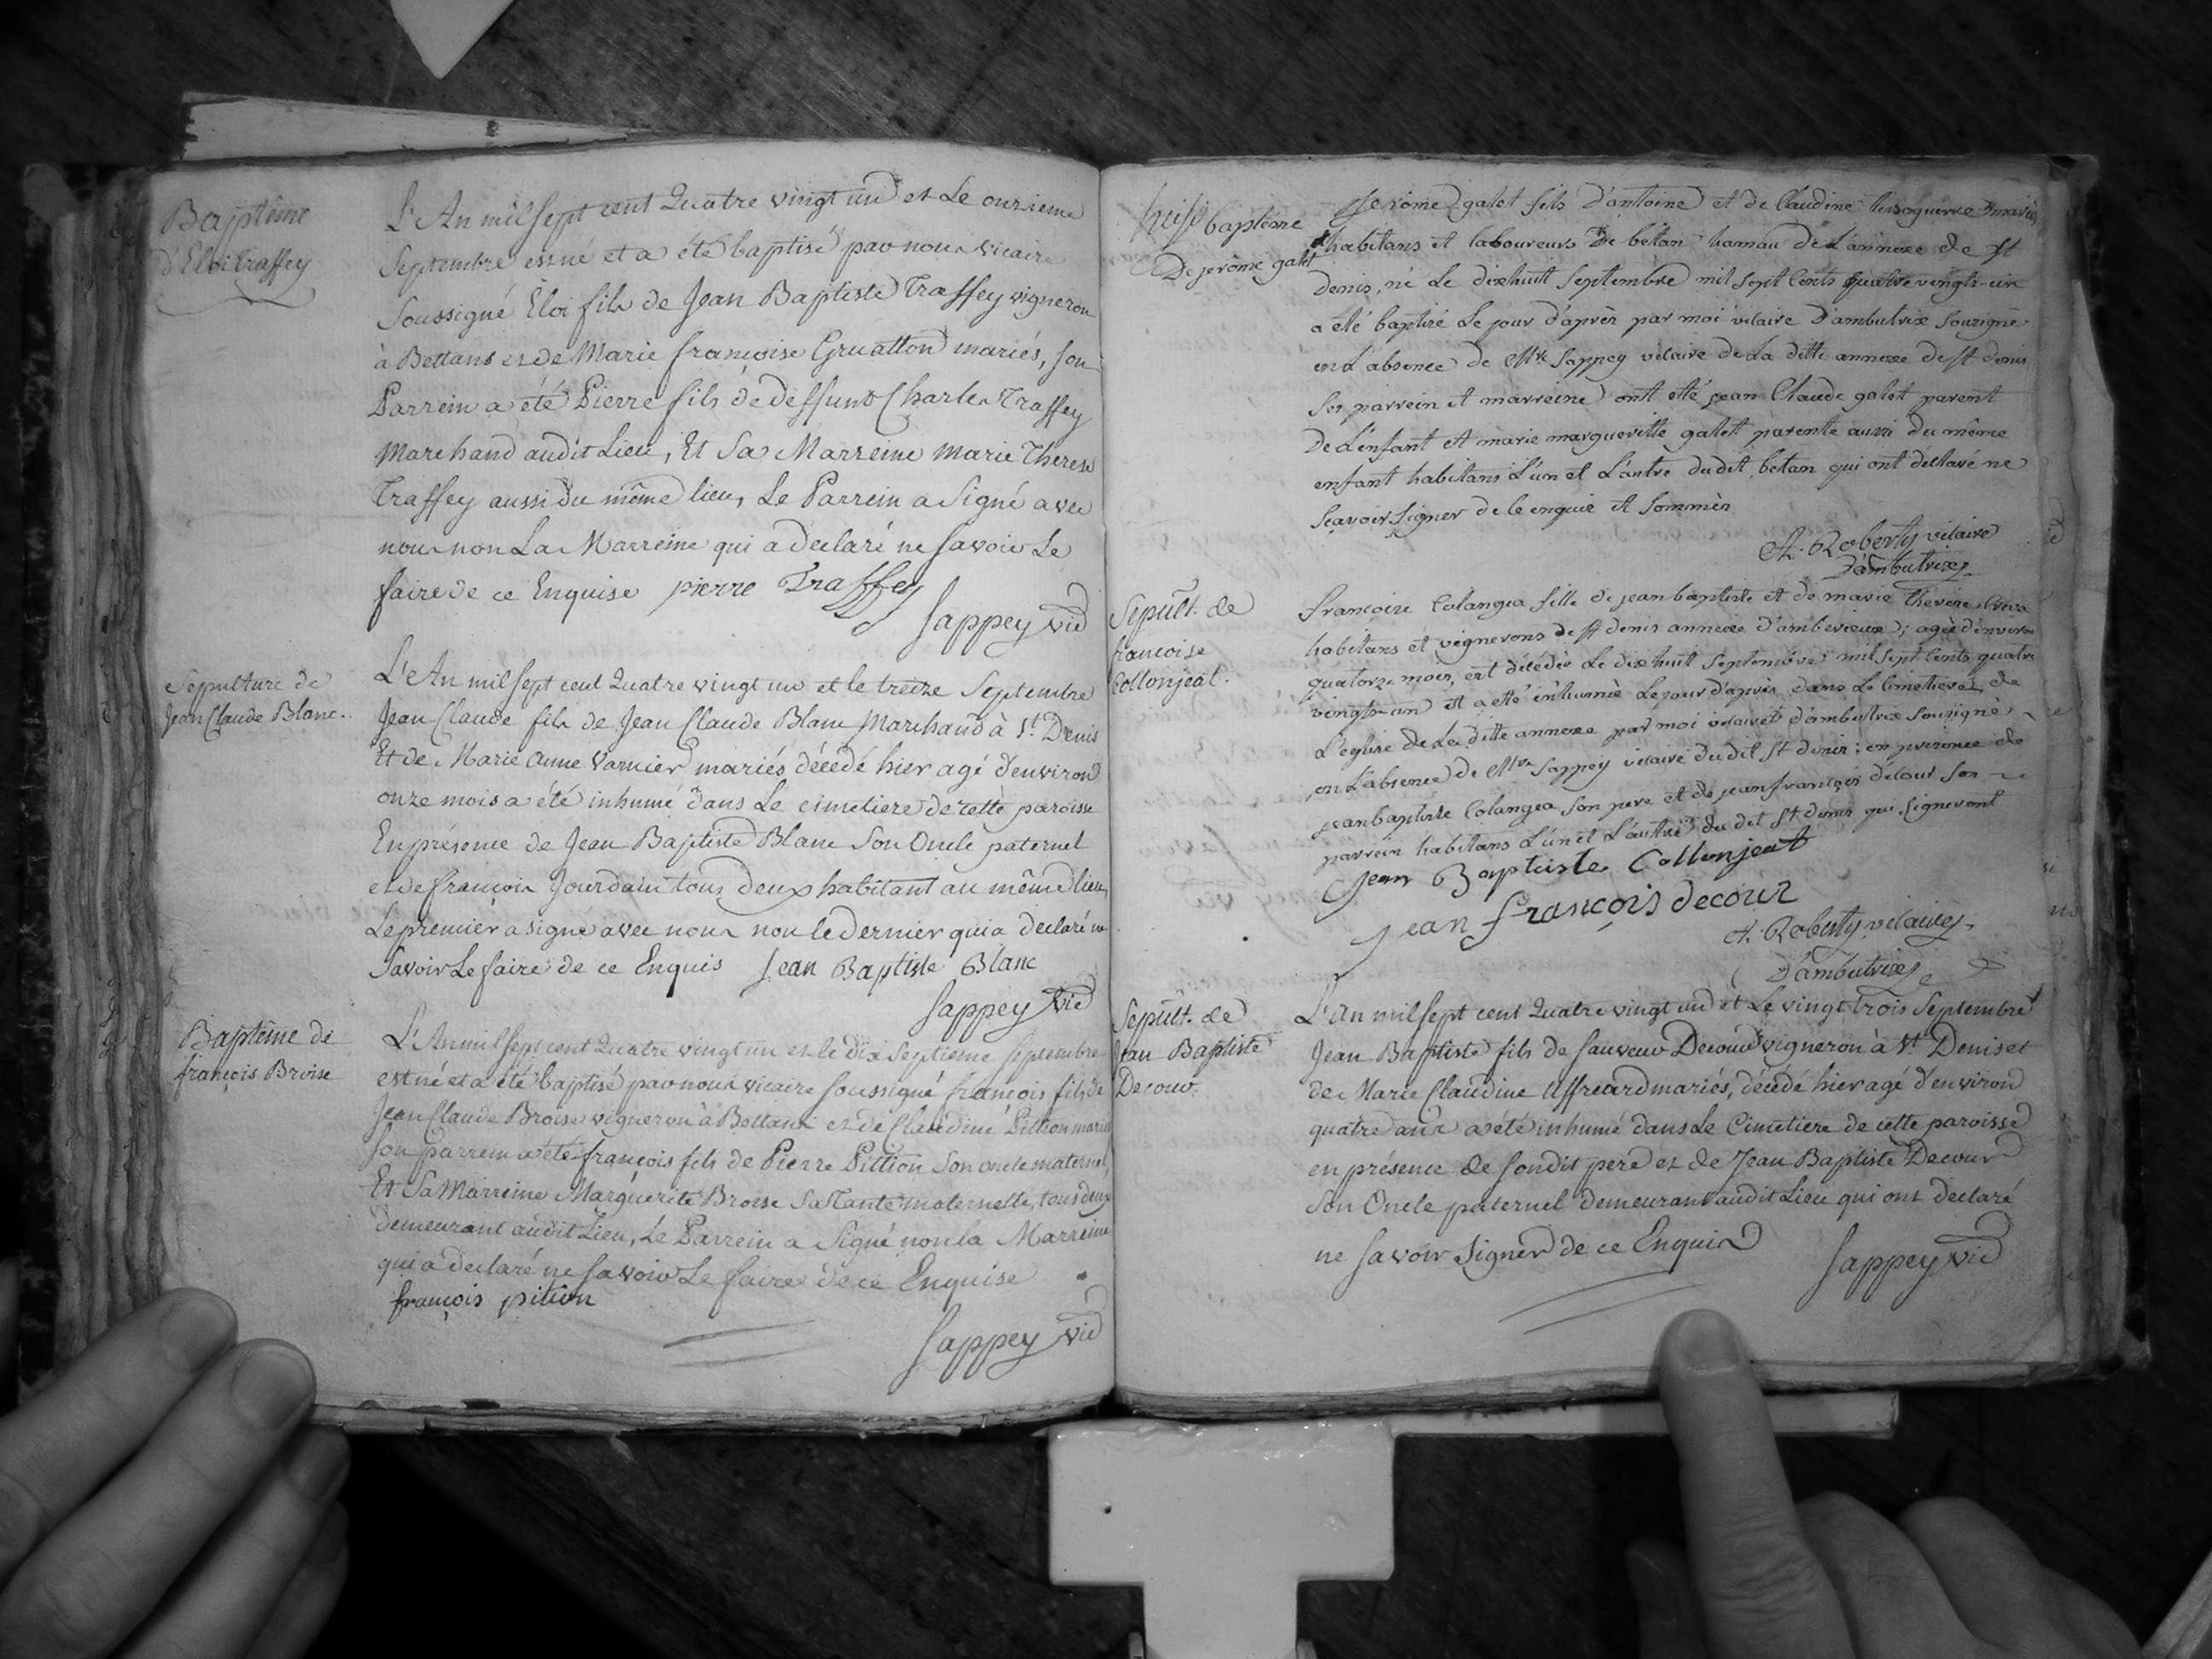 Baptême
d'Eloi Traffey
L'An mil sept cent Quatre vingt un et Le onzieme
Septembre est né et a été baptisé par nous vicaire
Soussigné Eloi fils de Jean Baptiste Traffey vigneron
à Bettans et de Marie françoise Gruatton mariés, son
Parrein a été Pierre fils de deffunt Charles Traffey
Marchand audit Lieu, Et Sa Marreine Marie Therese
Traffey aussi du même lieu, Le Parrein a Signé avec
nous non La Marreine qui a declaré ne savoir Le
faire de ce Enquise pierre Traffey
Sappey vic
Sepulture de
Jean Claude Blanc.
L'An mil sept cent Quatre vingt un et le treize Septembre
Jean Claude fils de Jean Claude Blanc Marchand à St. Denis
Et de Marie Anne Varnier mariés décédé hier agé d'environ
onze mois a été inhumé dans Le cimetiere de cette paroisse
En présence de Jean Baptiste Blanc Son Oncle paternel
et de françois Jourdain tous deux habitant au même lieu,
Le premier a signé avec nous non le dernier qui a declaré ne
Savoir Le faire de ce Enquis Jean Baptiste Blanc
Sappey vic
Baptême de
françois Broise
L'An mil sept cent Quatre vingt un et le dix Septieme Septembre
est né et a été baptisé par nous vicaire soussigné françois fils de
Jean Claude Broise vigneron à Bettans et de Claudine Pittion mariés
Son parrein a été françois fils de Pierre Pittion Son oncle maternel,
Et Sa Marreine Marguerite Broise Sa Tante maternelle, tous deux
demeurant audit Lieu, Le Parrein a Signé non la Marreine
qui a declaré ne savoir Le faire de ce Enquise
françois pition
Sappey vic
baptême
De jerôme galet
Jerôme galet fils d'antoine et de Claudine mariés
habitans et laboureurs De betan hamau de L'annexe de st
denis, né Le dixhuit Septembre mil sept Cents quatre vingts-un
a été baptizé Le jour d'après par moi vicaire D'ambutrix Souzigné
en L'absence de Mre Sappey vicaire de La ditte annexe de st denis
Ses parrein et marreine ont eté jean Claude galet parent
De L'enfant et marie marguerite galet parente aussi du même
enfant habitans L'un et L'autre dudit betan qui ont declaré ne
Sçavoir Signer de le enquis et Sommés
A. Roberty vicaire
D'ambutrix
Sepult. de
francoise
Collonjeat.
françoise Colangea fille de jean baptiste et de marie therese
habitans et vignerons de st denis annexe d'amberieux; agée d'environ
quatorze mois, est décédée Le dixhuit Septembre mil sept Cents quatre
vingts-un et a eté inhumée Le jour d'après dans Le Cimetiere de
L'eglise de La ditte annexe par moi vicaire d'ambutrix Souzigné
en L'absence de Mre Sappey vicaire du dit st denis; en presence de
jean baptiste Colangea son pere et de jean françois decour son
parrein habitans L'un et L'autre du dit st denis qui signeront
Jean Baptiste Collonjeat
jean françois decour
A. Roberty vicaire
D'ambutrix
Sepult. de
Jean Baptiste
Decour.
L'An mil sept cent Quatre vingt un et Le vingt trois Septembre
Jean Baptiste fils de Sauveur Decour vigneron à St. Denis et
de Marie Claudine Uffreard mariés, décédé hier agé d'environ
quatre ans a été inhumé dans Le Cimetiere de cette paroisse
en présence de Son dit pere et de Jean Baptiste Decour
Son Oncle paternel demeurant audit Lieu qui ont declaré
ne Savoir Signer de ce Enquis
Sappey vic